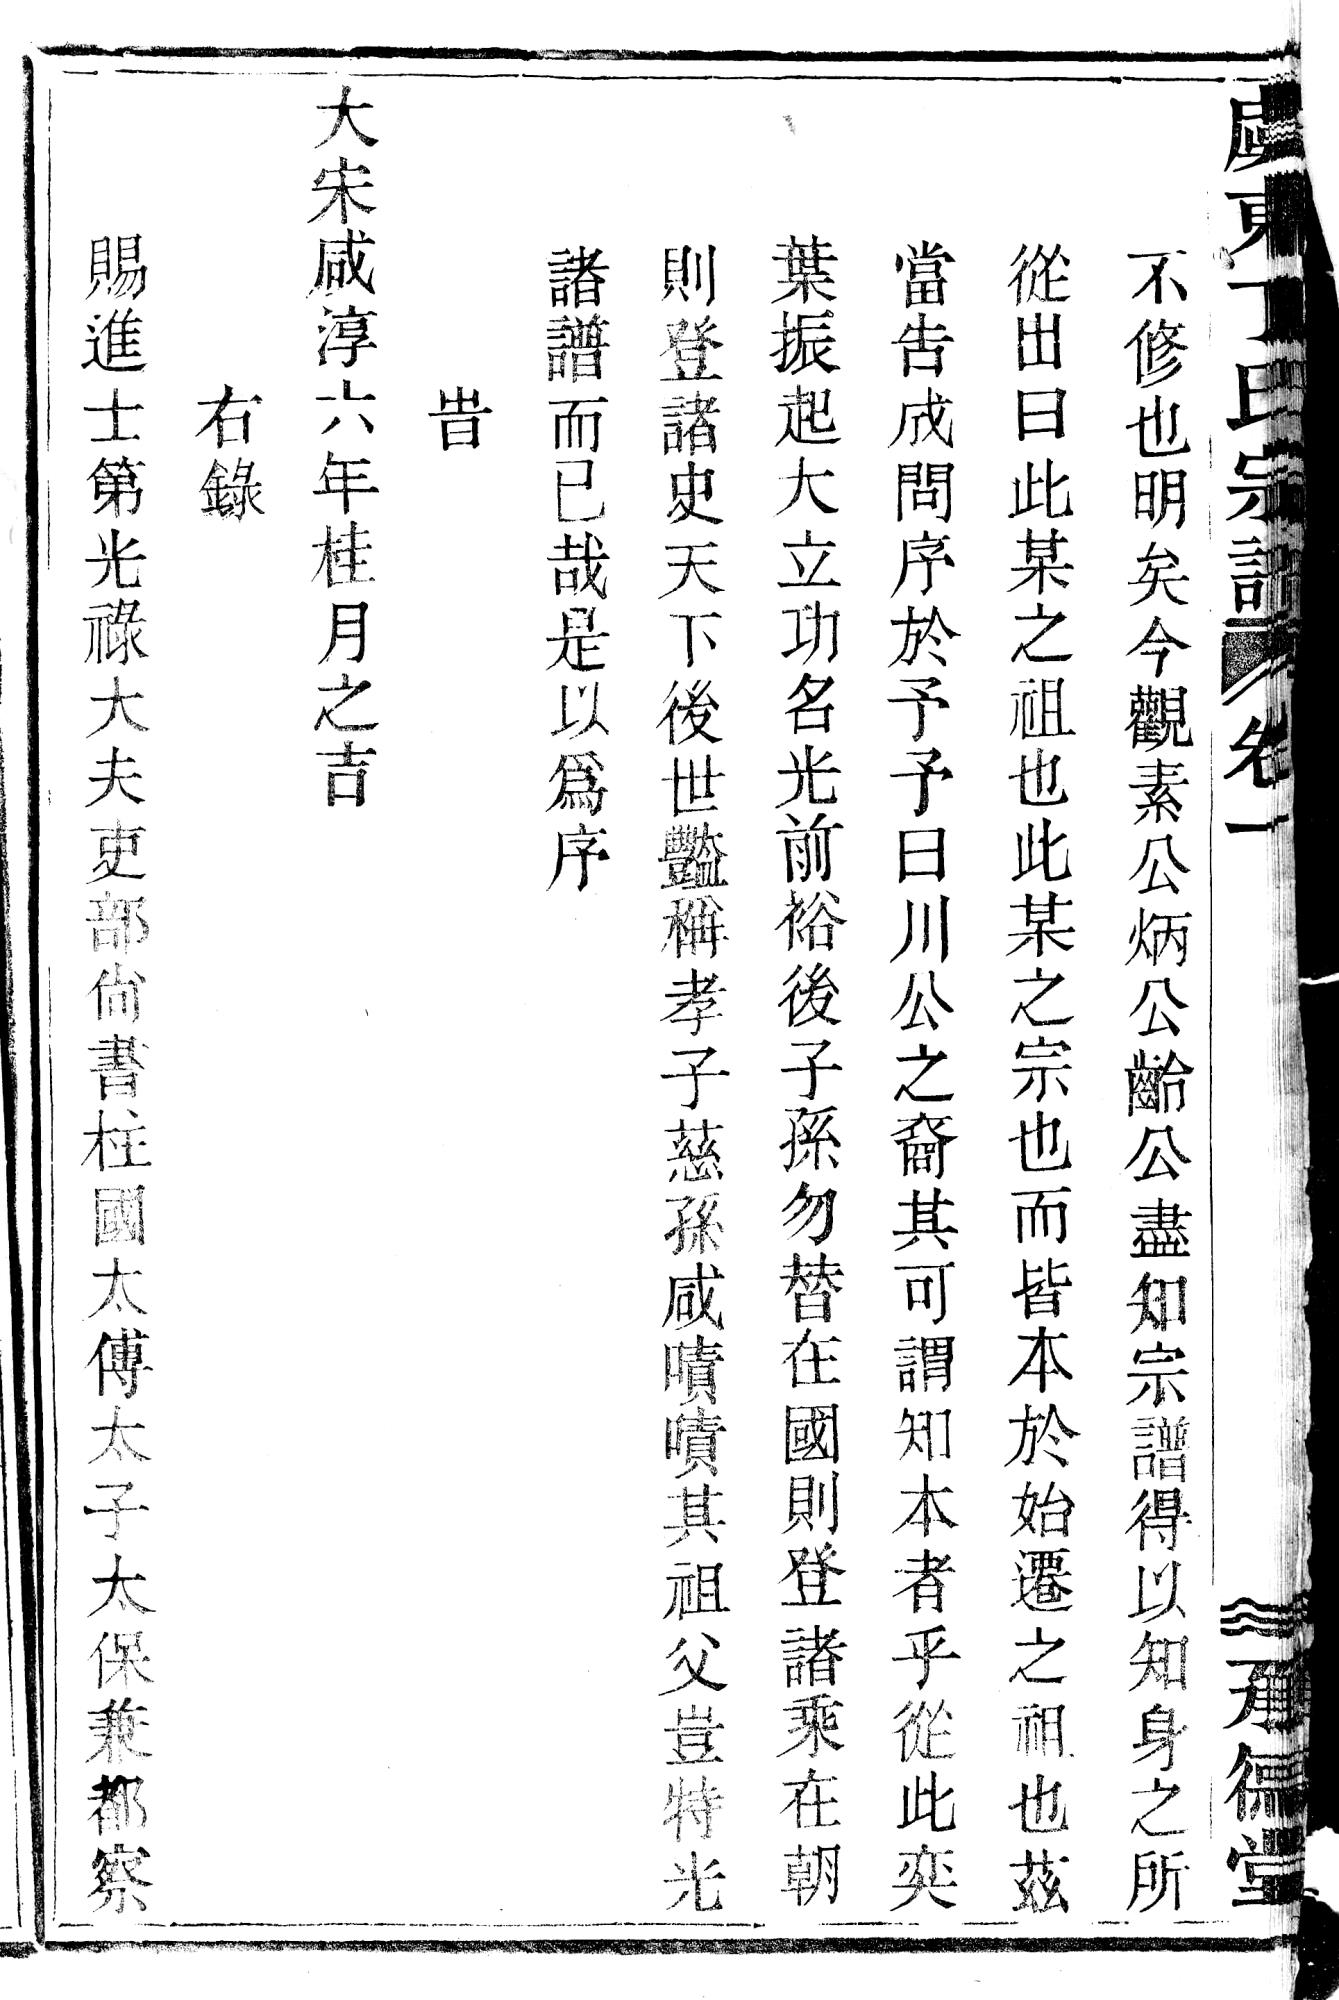 虞東丁氏宗譜 卷一 承德堂
不修也明矣今觀素公炳公齡公盡知宗譜得以知身之所
從出曰此某之祖也此某之宗也而皆本於始遷之祖也茲
當告成問序於予予曰川公之裔其可謂知本者乎從此奕
葉振起大立功名光前裕後子孫勿替在國則登諸乘在朝
則登諸史天下後世豔稱孝子慈孫咸嘖嘖其祖父豈特光
諸譜而已哉是以爲序
旹
大宋咸淳六年桂月之吉
右錄
賜進士第光祿大夫吏部尙書柱國太傅太子太保兼都察